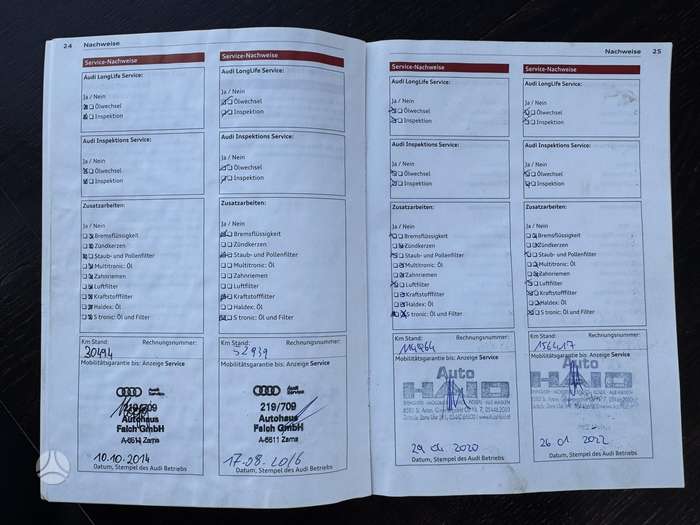 24 Nachweise
Service-Nachweise
Audi LongLife Service:
Ja / Nein
Ölwechsel
Inspektion
Audi Inspektions Service:
Ja / Nein
Ölwechsel
Inspektion
Zusatzarbeiten:
Ja / Nein
Bremsflüssigkeit
Zündkerzen
Staub- und Pollenfilter
Multitronic: Öl
Zahnriemen
Luftfilter
Kraftstofffilter
Haldex: Öl
S tronic: Öl und Filter
Km Stand: Rechnungsnummer:
30494
Mobilitätsgarantie bis: Anzeige Service
Audi Service
219/709
Autohaus
Falch GmbH
A-6511 Zams
10.10.2014
Datum, Stempel des Audi Betriebs
Service-Nachweise
Audi LongLife Service:
Ja / Nein
Ölwechsel
Inspektion
Audi Inspektions Service:
Ja / Nein
Ölwechsel
Inspektion
Zusatzarbeiten:
Ja / Nein
Bremsflüssigkeit
Zündkerzen
Staub- und Pollenfilter
Multitronic: Öl
Zahnriemen
Luftfilter
Kraftstofffilter
Haldex: Öl
S tronic: Öl und Filter
Km Stand: Rechnungsnummer:
52939
Mobilitätsgarantie bis: Anzeige Service
Audi Service
219/709
Autohaus
Falch GmbH
A-6511 Zams
17.08.2016
Datum, Stempel des Audi Betriebs
Nachweise 25
Service-Nachweise
Audi LongLife Service:
Ja / Nein
Ölwechsel
Inspektion
Audi Inspektions Service:
Ja / Nein
Ölwechsel
Inspektion
Zusatzarbeiten:
Ja / Nein
Bremsflüssigkeit
Zündkerzen
Staub- und Pollenfilter
Multitronic: Öl
Zahnriemen
Luftfilter
Kraftstofffilter
Haldex: Öl
S tronic: Öl und Filter
Km Stand: Rechnungsnummer:
Mobilitätsgarantie bis: Anzeige Service
Auto
HAID
Datum, Stempel des Audi Betriebs
Service-Nachweise
Audi LongLife Service:
Ja / Nein
Ölwechsel
Inspektion
Audi Inspektions Service:
Ja / Nein
Ölwechsel
Inspektion
Zusatzarbeiten:
Ja / Nein
Bremsflüssigkeit
Zündkerzen
Staub- und Pollenfilter
Multitronic: Öl
Zahnriemen
Luftfilter
Kraftstofffilter
Haldex: Öl
S tronic: Öl und Filter
Km Stand: Rechnungsnummer:
156417
Mobilitätsgarantie bis: Anzeige Service
Auto
HAID
26 01 2022
Datum, Stempel des Audi Betriebs